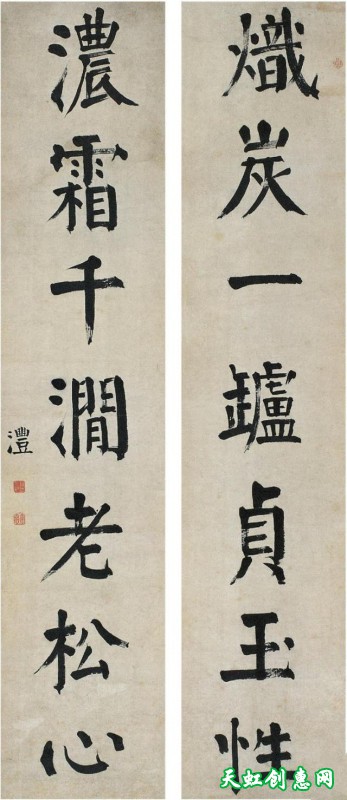 熾炭一鑪貞玉性
濃霜千澗老松心
澧
天虹创惠网